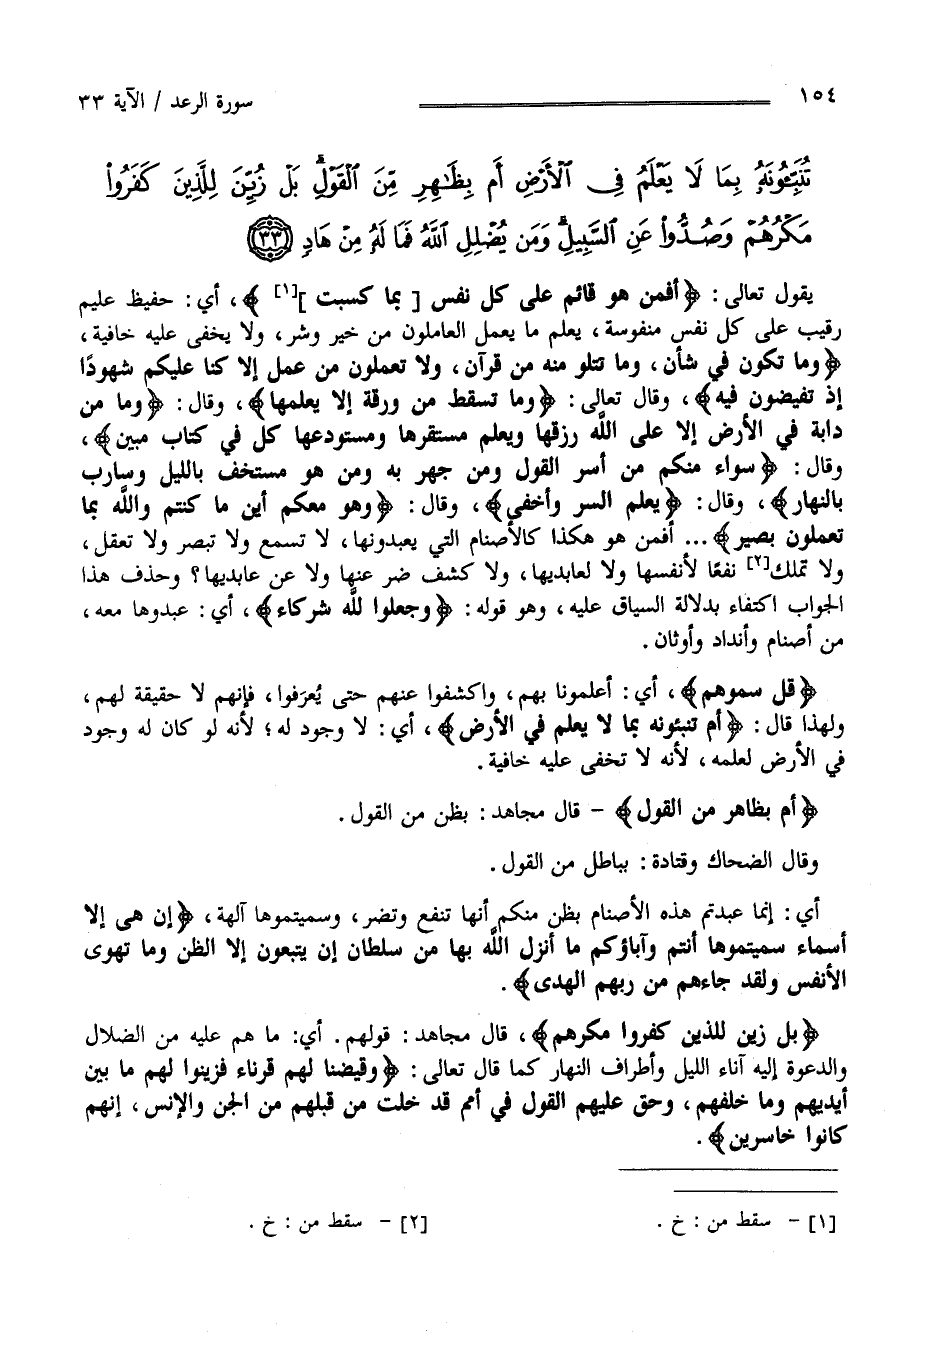 ١٥٤
سورة الرعد / الآية ٣٣
تُنَبِّـُٔونَهُۥ بِمَا لَا يَعْلَمُ فِى ٱلْأَرْضِ أَم بِظَٰهِرٍ مِّنَ ٱلْقَوْلِ ۗ بَلْ زُيِّنَ لِلَّذِينَ كَفَرُوا۟
مَكْرُهُمْ وَصُدُّوا۟ عَنِ ٱلسَّبِيلِ ۗ وَمَن يُضْلِلِ ٱللَّهُ فَمَا لَهُۥ مِنْ هَادٍ (٣٣)
يقول تعالى : ﴿أفمن هو قائم على كل نفس [ بما كسبت ][١] ﴾ ، أي : حفيظ عليم
رقيب على كل نفس منفوسة ، يعلم ما يعمل العاملون من خير وشر ، ولا يخفى عليه خافية ،
﴿وما تكون في شأن ، وما تتلو منه من قرآن ، ولا تعملون من عمل إلا كنا عليكم شهودًا
إذ تفيضون فيه﴾ ، وقال تعالى : ﴿وما تسقط من ورقة إلا يعلمها﴾ ، وقال : ﴿وما من
دابة في الأرض إلا على اللَّه رزقها ويعلم مستقرها ومستودعها كل في كتاب مبين﴾ ،
وقال : ﴿سواء منكم من أسر القول ومن جهر به ومن هو مستخف بالليل وسارب
بالنهار﴾ ، وقال : ﴿يعلم السر وأخفى﴾ ، وقال : ﴿وهو معكم أين ما كنتم واللَّه بما
تعملون بصير﴾ ... أفمن هو هكذا كالأصنام التي يعبدونها ، لا تسمع ولا تبصر ولا تعقل ،
ولا تملك[٢] نفعًا لأنفسها ولا لعابديها ، ولا كشف ضر عنها ولا عن عابديها ؟ وحذف هذا
الجواب اكتفاء بدلالة السياق عليه ، وهو قوله : ﴿وجعلوا للَّه شركاء﴾ ، أي : عبدوها معه ،
من أصنام وأنداد وأوثان .
﴿قل سموهم﴾ ، أي : أعلمونا بهم ، واكشفوا عنهم حتى يُعرَفوا ، فإنهم لا حقيقة لهم ،
ولهذا قال : ﴿أم تنبئونه بما لا يعلم في الأرض﴾ ، أي : لا وجود له ؛ لأنه لو كان له وجود
في الأرض لعلمه ، لأنه لا تخفى عليه خافية .
﴿أم بظاهر من القول﴾ – قال مجاهد : بظن من القول .
وقال الضحاك وقتادة : بباطل من القول .
أي : إنما عبدتم هذه الأصنام بظن منكم أنها تنفع وتضر ، وسميتموها آلهة ، ﴿إن هى إلا
أسماء سميتموها أنتم وآباؤكم ما أنزل اللَّه بها من سلطان إن يتبعون إلا الظن وما تهوى
الأنفس ولقد جاءهم من ربهم الهدى﴾ .
﴿بل زين للذين كفروا مكرهم﴾ ، قال مجاهد : قولهم . أي: ما هم عليه من الضلال
والدعوة إليه آناء الليل وأطراف النهار كما قال تعالى : ﴿وقيضنا لهم قرناء فزينوا لهم ما بين
أيديهم وما خلفهم ، وحق عليهم القول في أمم قد خلت من قبلهم من الجن والإنس ، إنهم
كانوا خاسرين﴾ .
[١] – سقط من : خ .
[٢] – سقط من : خ .